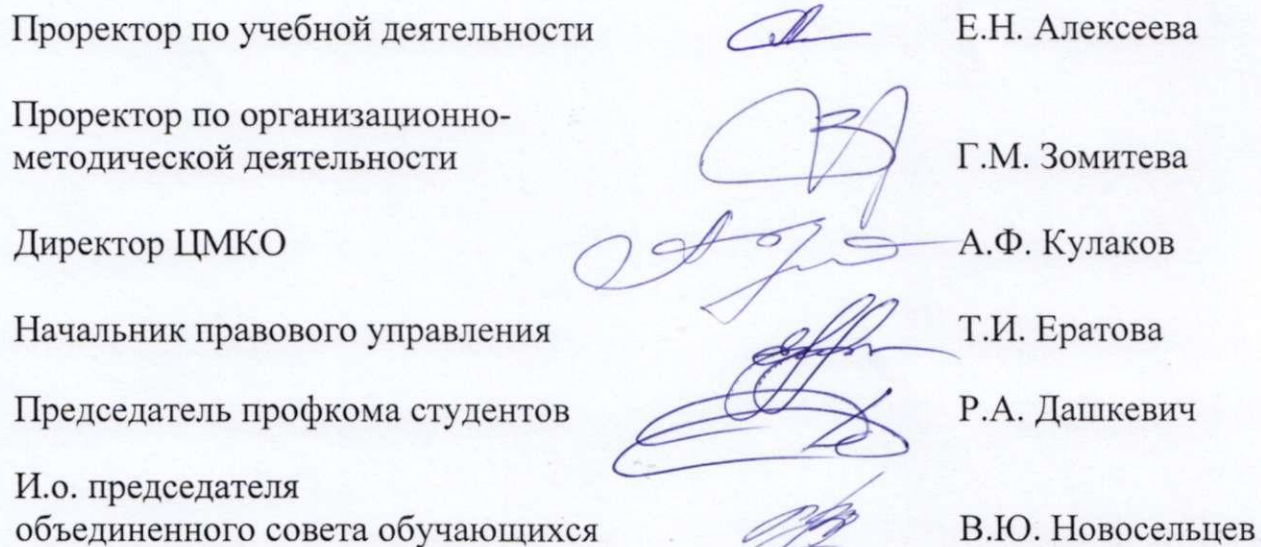 Проректор по учебной деятельности Е.Н. Алексеева
Проректор по организационно-
методической деятельности Г.М. Зомитева
Директор ЦМКО А.Ф. Кулаков
Начальник правового управления Т.И. Ератова
Председатель профкома студентов Р.А. Дашкевич
И.о. председателя
объединенного совета обучающихся В.Ю. Новосельцев